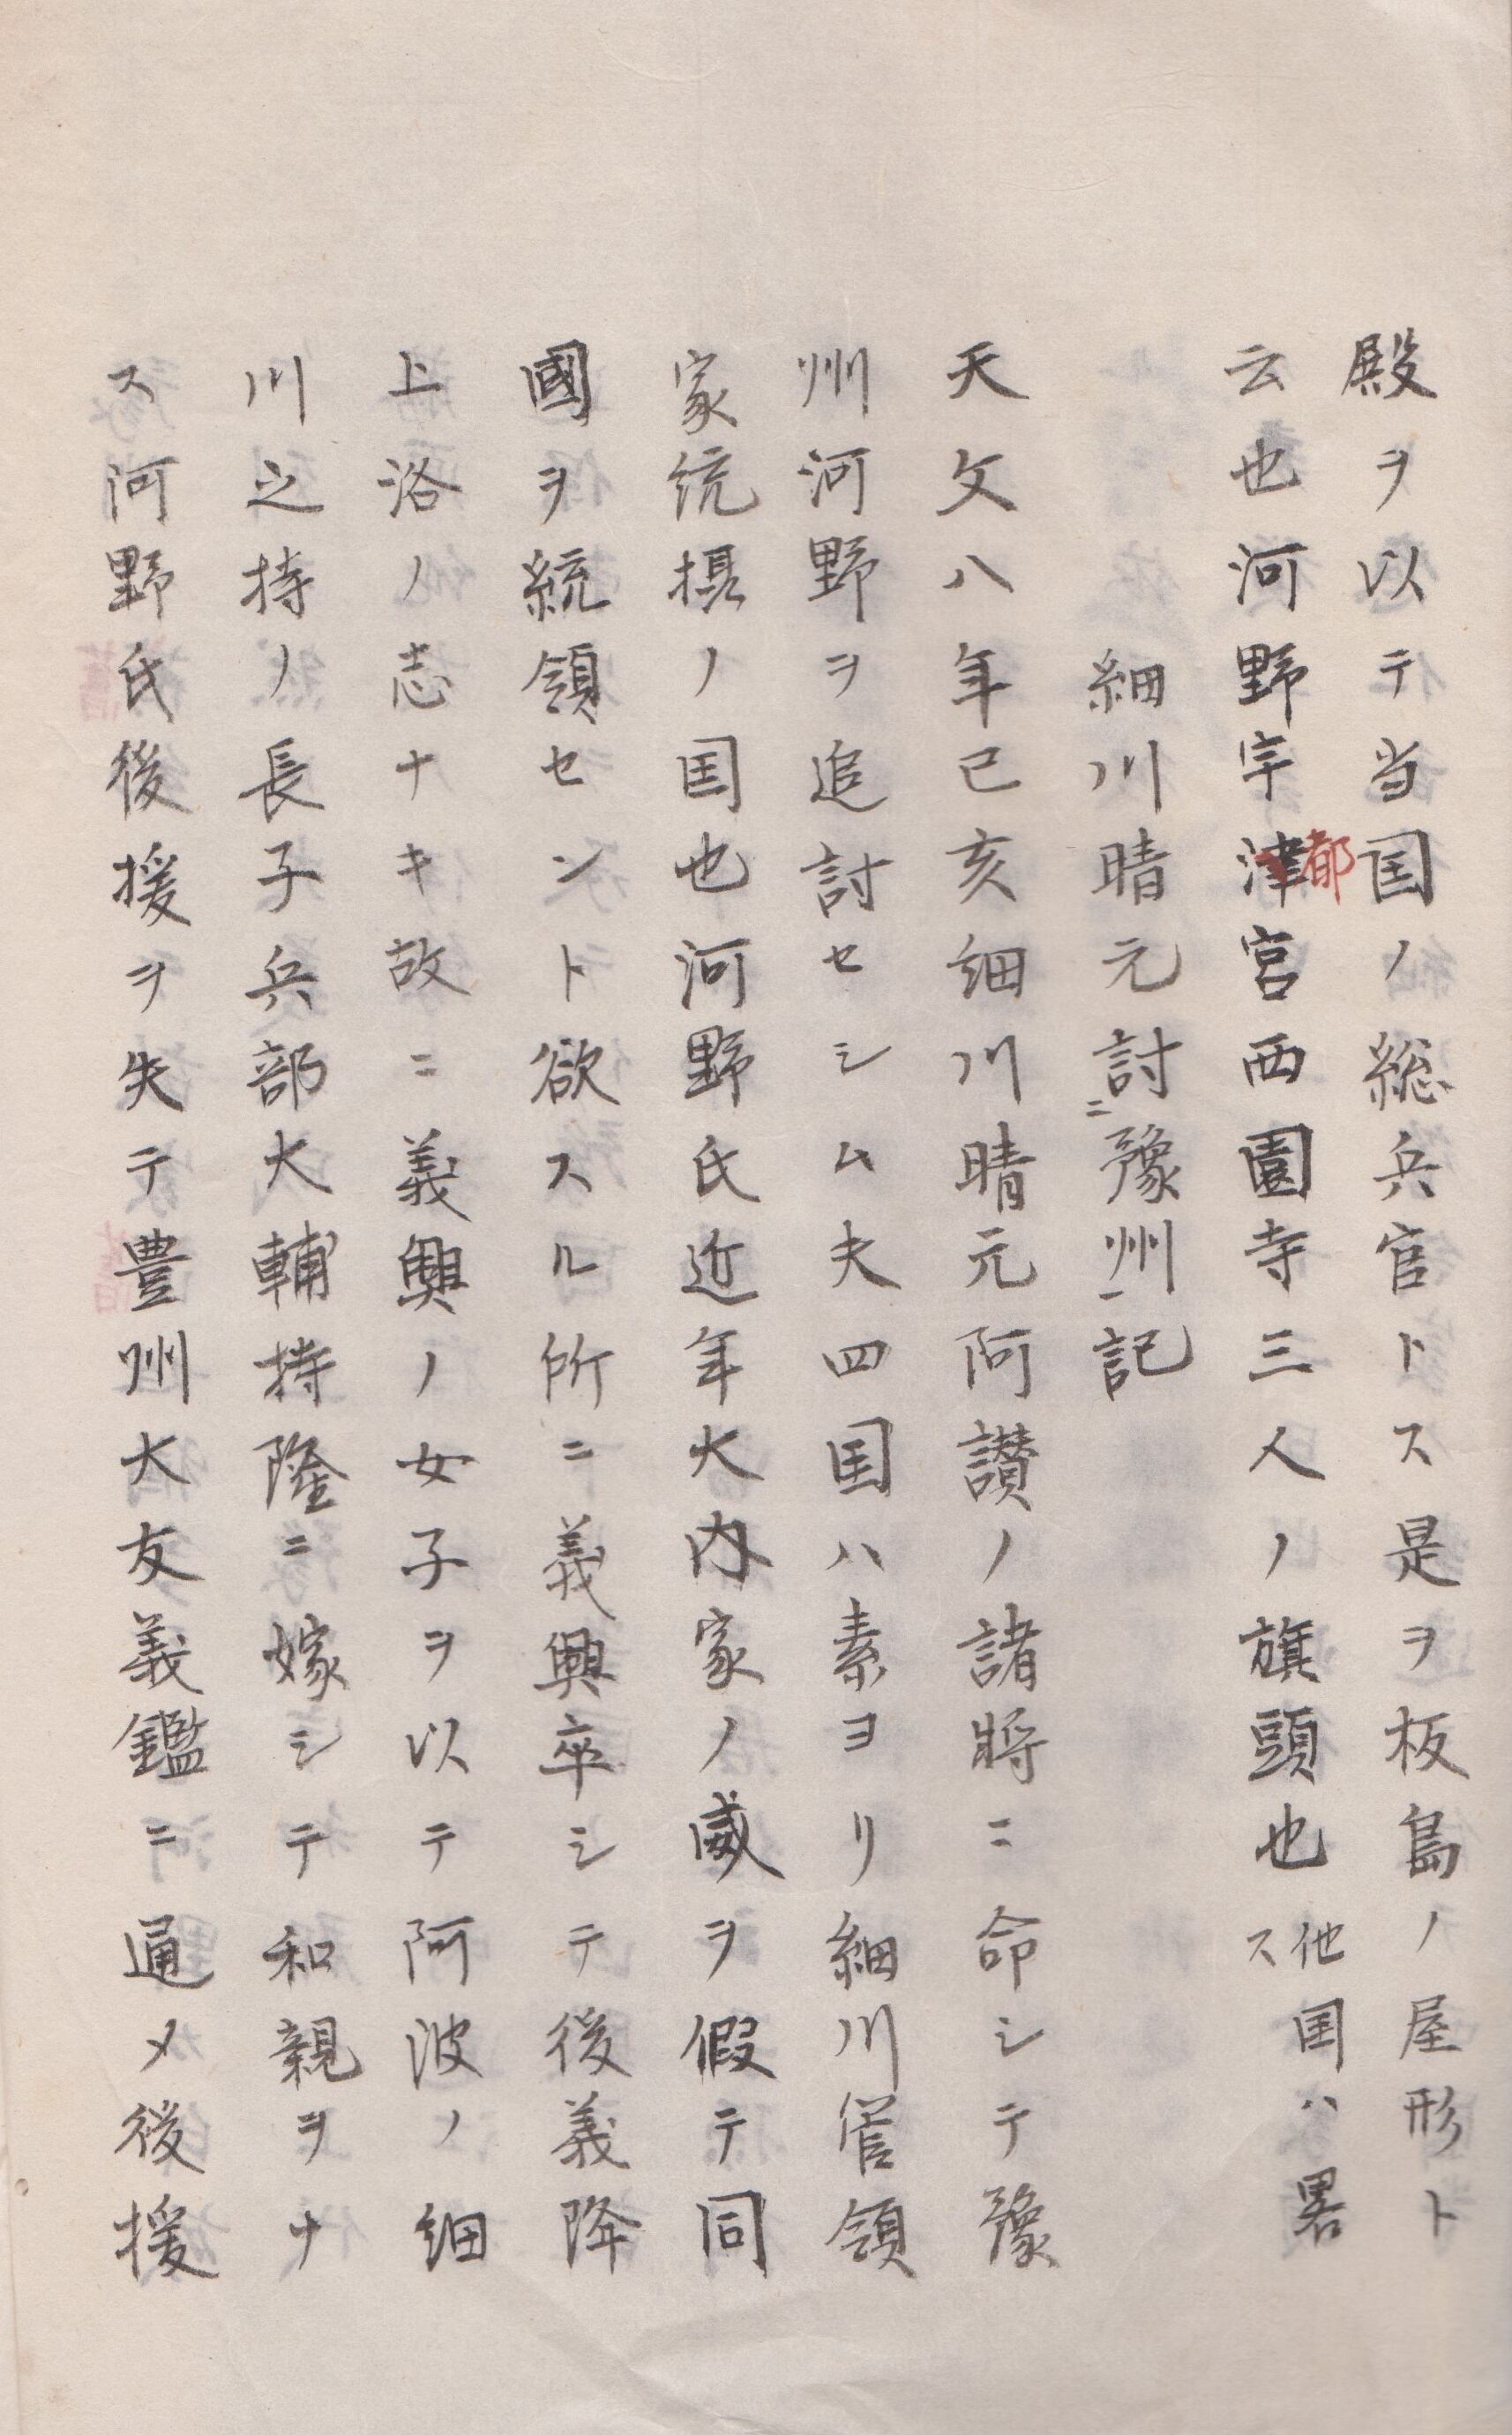 殿ヲ以テ当国ノ総兵官トス是ヲ板島ノ屋形ト
云也河野宇津都宮西園寺三人ノ旗頭也他国ハ畧ス
細川晴元討ニ豫州一記
天文八年已亥細川晴元阿讃ノ諸将ニ命シテ豫
州河野ヲ追討セシム夫四国ハ素ヨリ細川管領
家統摂ノ国也河野氏近年大内家ノ威ヲ假テ同
國ヲ統領セント欲スル所ニ義興卒シテ後義降
上洛ノ志ナキ故ニ義興ノ女子ヲ以テ阿波ノ細
川之持ノ長子兵部大輔持隆ニ嫁シテ和親ヲナ
ス河野氏後援ヲ失テ豊州大友義鑑ニ通メ後援